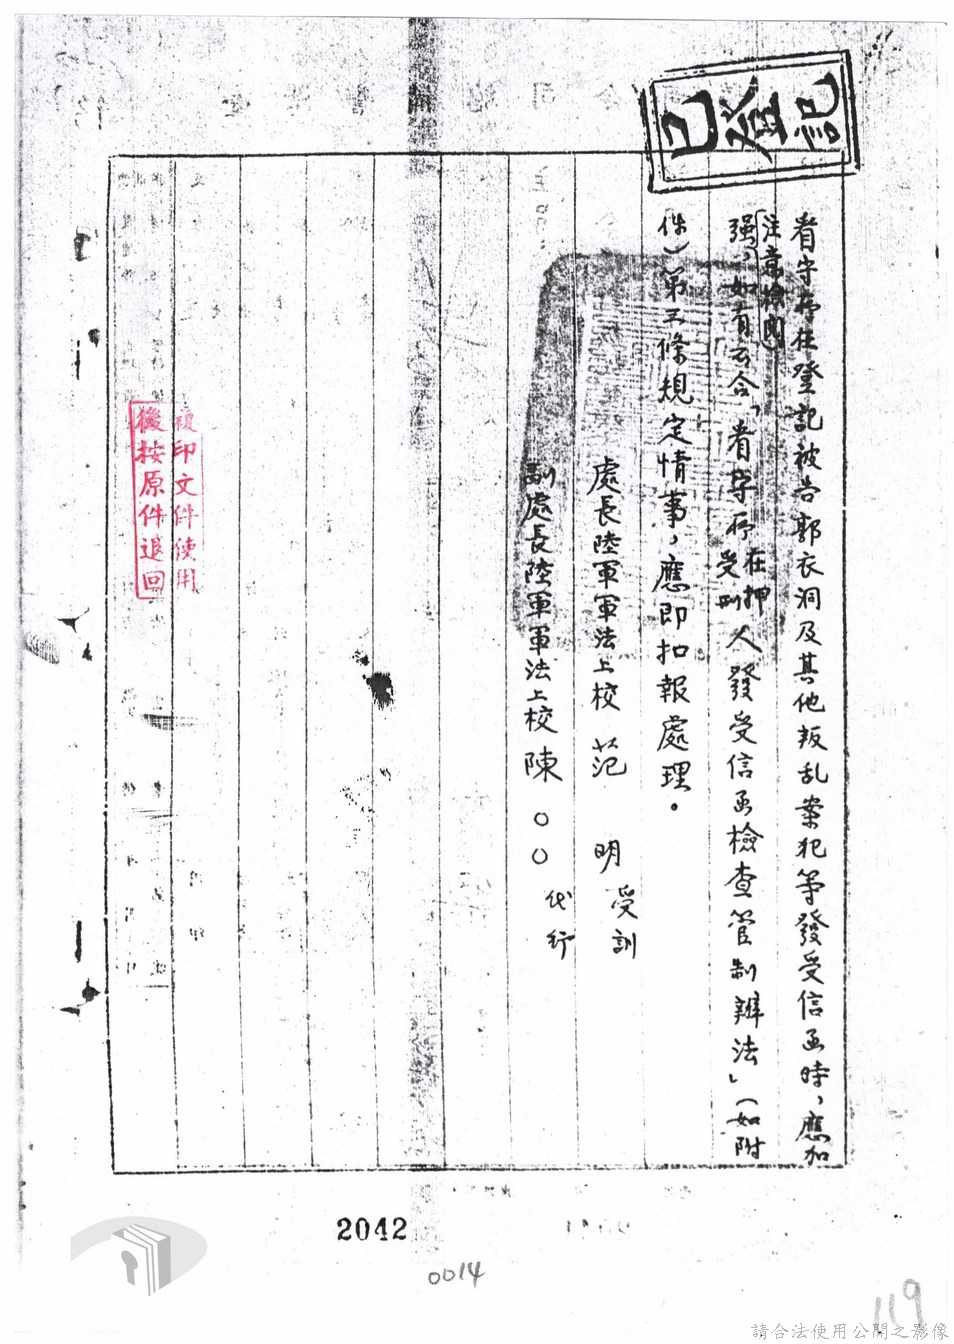 已登記
看守所在登記被告郭衣洞及其他叛乱案犯等發受信函時，應加
注意檢閱
强，如有不合「看守所在押受刑人發受信函檢查管制辦法」（如附
件）第三條規定情事，應即扣報處理。
處長陸軍軍法上校 范 明 受訓
副處長陸軍軍法上校 陳○○ 代行
複印文件使用
後按原件退回
2042
0014
119
請合法使用公開之影像